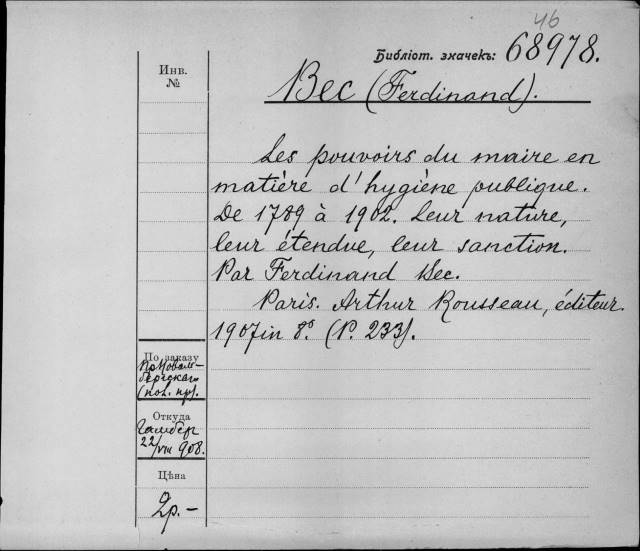 46
Библіот. значекъ: 68978.
Инв.
№
Bec (Ferdinand).
Les pouvoirs du maire en
matière d'hygiène publique.
De 1789 à 1902. Leur nature,
leur étendue, leur sanction.
Par Ferdinand Bec.
Paris. Arthur Rousseau, éditeur.
1907 in 8º. (P. 233).
По заказу
(пол. пр).
Откуда
22/VIII 908.
Цѣна
2р.-